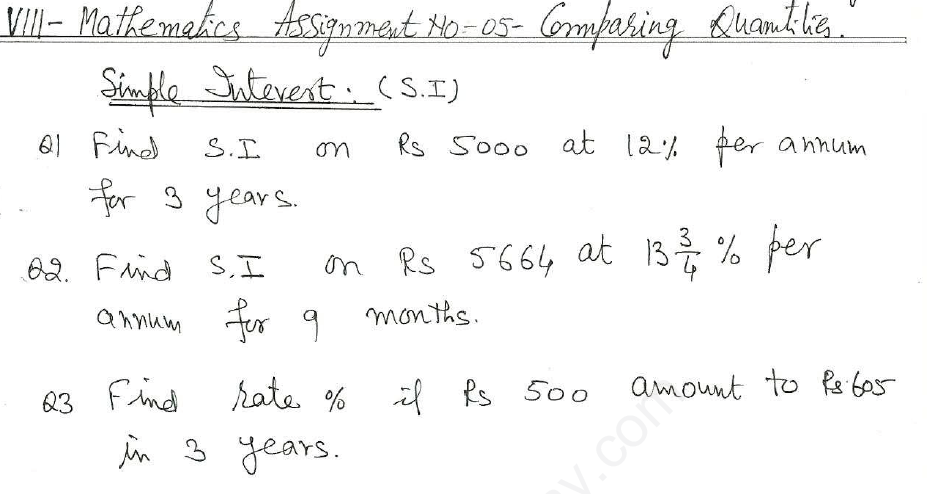 VIII- Mathematics Assignment No-05- Comparing Quantities.
Simple Interest: (S.I)
Q1 Find S.I on Rs 5000 at 12% per annum
for 3 years.
Q2. Find S.I on Rs 5664 at 13 3/4 % per
annum for 9 months.
Q3 Find rate % if Rs 500 amount to Rs 605
in 3 years.